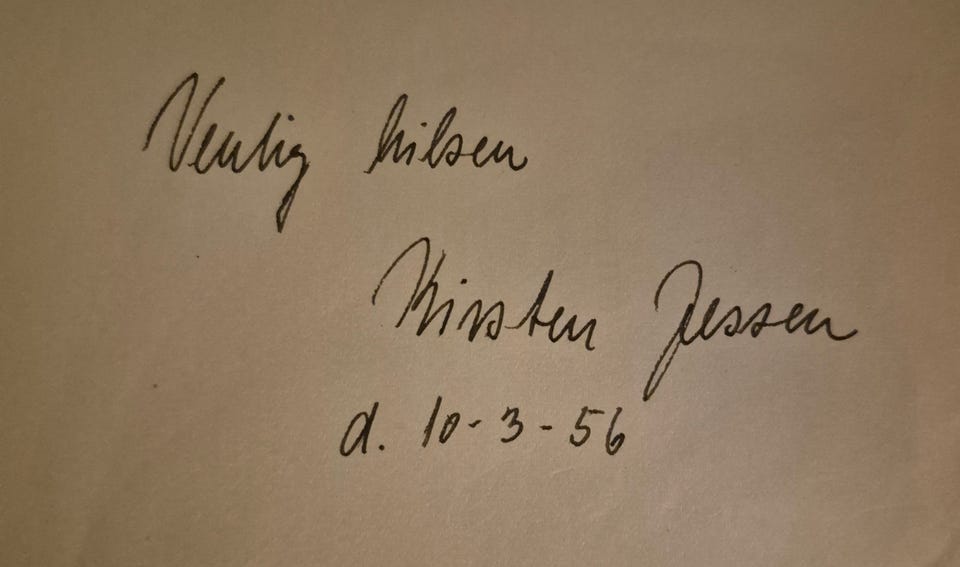 Venlig hilsen
Kirsten Jessen
d. 10-3-56